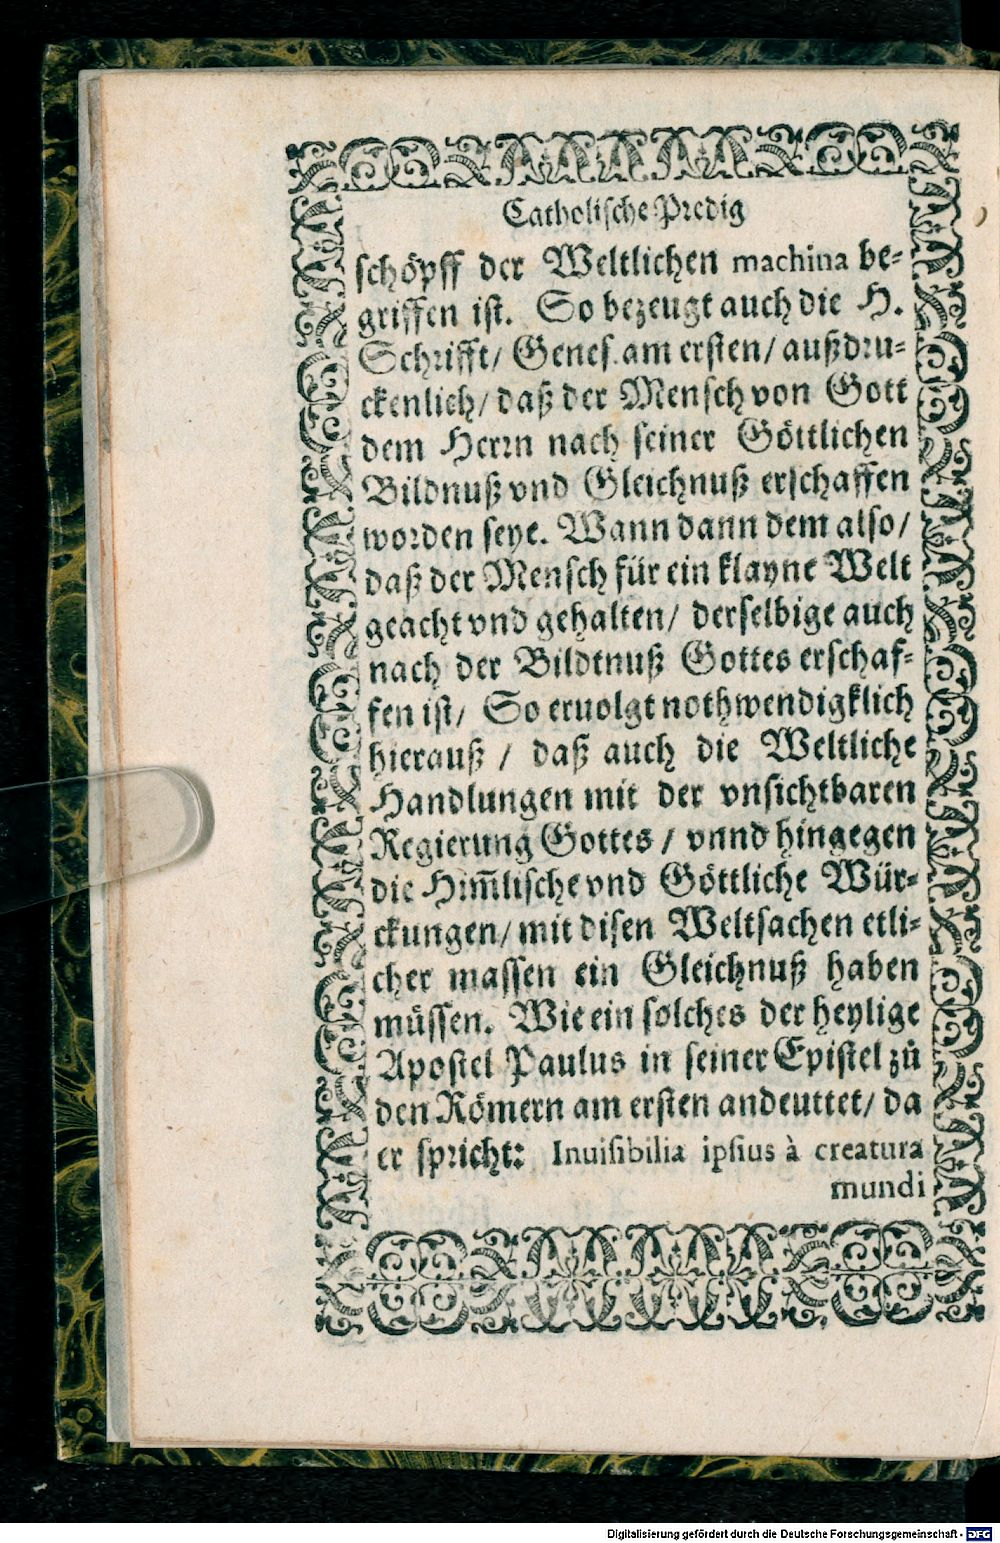 Catholische Predig
schöpff der Weltlichen machina be-
griffen ist. So bezeugt auch die H.
Schrifft/ Genes. am ersten/ außdru-
ckenlich/ daß der Mensch von Gott
dem Herrn nach seiner Göttlichen
Bildnuß vnd Gleichnuß erschaffen
worden seye. Wann dann dem also/
daß der Mensch für ein klayne Welt
geacht vnd gehalten/ derselbige auch
nach der Bildtnuß Gottes erschaf-
fen ist/ So eruolgt nothwendigklich
hierauß / daß auch die Weltliche
Handlungen mit der vnsichtbaren
Regierung Gottes / vnnd hingegen
die Him̄lische vnd Göttliche Wür-
ckungen/ mit disen Weltsachen etli-
cher massen ein Gleichnuß haben
müssen. Wie ein solches der heylige
Apostel Paulus in seiner Epistel zů
den Römern am ersten andeuttet/ da
er spricht: Inuisibilia ipsius à creatura
mundi
Digitalisierung gefördert durch die Deutsche Forschungsgemeinschaft - DFG